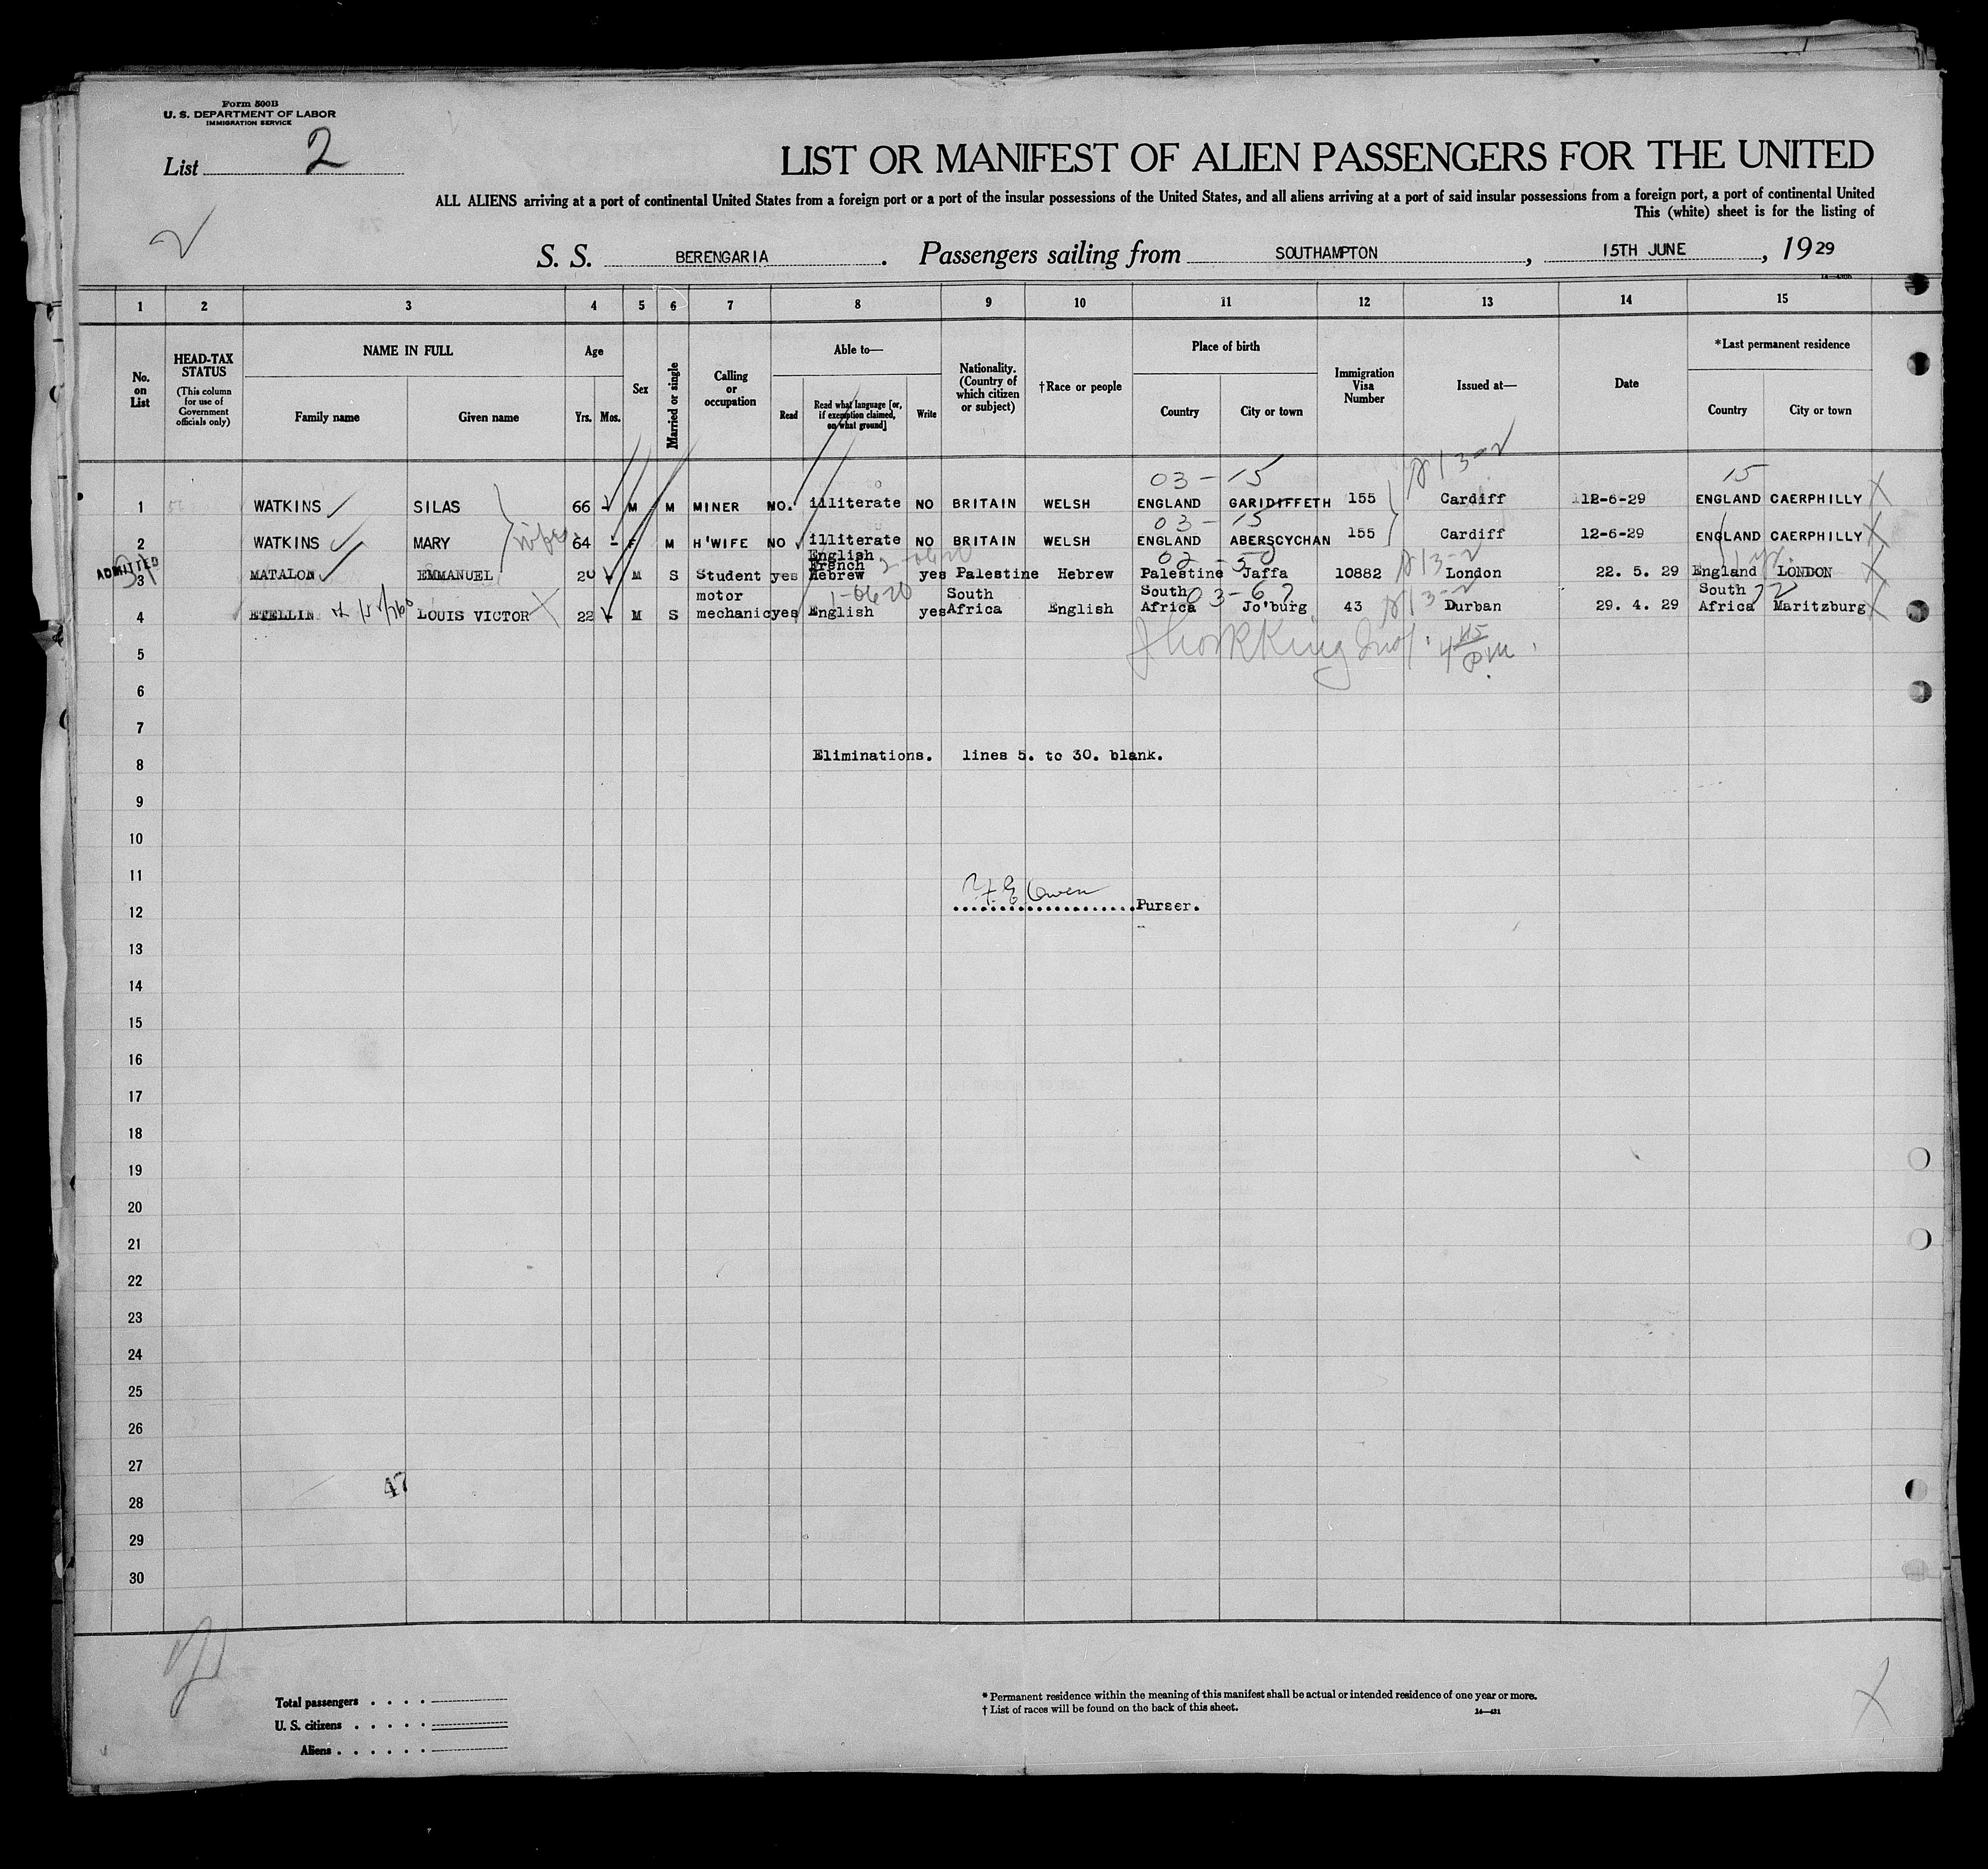 Form 500B
U. S. DEPARTMENT OF LABOR
IMMIGRATION SERVICE
List 2
LIST OR MANIFEST OF ALIEN PASSENGERS FOR THE UNITED
ALL ALIENS arriving at a port of continental United States from a foreign port or a port of the insular possessions of the United States, and all aliens arriving at a port of said insular possessions from a foreign port, a port of continental United
This (white) sheet is for the listing of
S. S. BERENGARIA. Passengers sailing from SOUTHAMPTON, 15TH JUNE, 1929
1 2 3 4 5 6 7 8 9 10 11 12 13 14 15
No. on List
HEAD-TAX STATUS (This column for use of Government officials only)
NAME IN FULL
Family name Given name
Age
Yrs. Mos.
Sex
Married or single
Calling or occupation
Able to—
Read Read what language [or, if exemption claimed, on what ground] Write
Nationality. (Country of which citizen or subject)
†Race or people
Place of birth
Country City or town
Immigration Visa Number
Issued at—
Date
*Last permanent residence
Country City or town
03-15 15
1 WATKINS SILAS 66 - M M MINER NO. illiterate NO BRITAIN WELSH ENGLAND GARIDIFFETH 155 Cardiff 12-6-29 ENGLAND CAERPHILLY
03-15
2 WATKINS MARY wife 64 - F M H'WIFE NO illiterate NO BRITAIN WELSH ENGLAND ABERSCYCHAN 155 Cardiff 12-6-29 ENGLAND CAERPHILLY
ADMITTED
3 MATALON EMMANUEL 20 - M S Student yes English French Hebrew yes Palestine Hebrew Palestine Jaffa 10882 London 22. 5. 29 England LONDON
4 ETELLIN LOUIS VICTOR 22 - M S motor mechanic yes English yes South Africa English South Africa Jo'burg 43 Durban 29. 4. 29 South Africa Maritzburg
5
6
7
Eliminations. lines 5. to 30. blank.
8
9
10
11
12 Purser.
13
14
15
16
17
18
19
20
21
22
23
24
25
26
27
47
28
29
30
Total passengers . . . .
U. S. citizens . . . . .
Aliens . . . . . .
* Permanent residence within the meaning of this manifest shall be actual or intended residence of one year or more.
† List of races will be found on the back of this sheet.
14—431